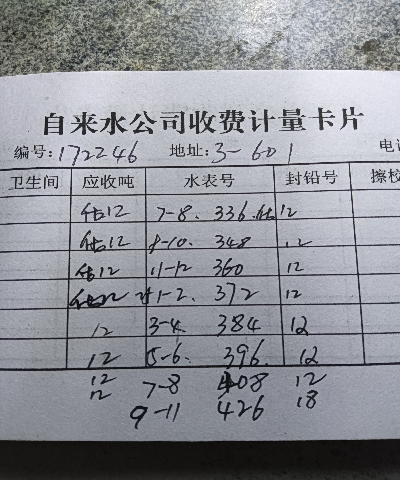 自来水公司收费计量卡片
编号:172246 地址:3-601 电话
卫生间 应收吨 水表号 封铅号 擦校
估12 7-8. 336.估 12
估12 8-10. 348 12
估12 11-12 360 12
估12 1-2. 372 12
12 3-4 384 12
12 5-6. 396. 12
12 7-8 408 12
12 9-11 426 18